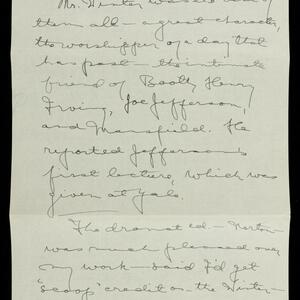 Mr. Winter was the last of
them all – a great character,
the worshipper of a day that
has past – the intimate
friend of Booth, Henry
Irving, Joe Jefferson,
and Mansfield. He
reported Jefferson's
first lecture, which was
given at Yale.
The dramat ed – Norton –
was much pleased over
my work – said I'd get
"scoop" credit on the Winter –